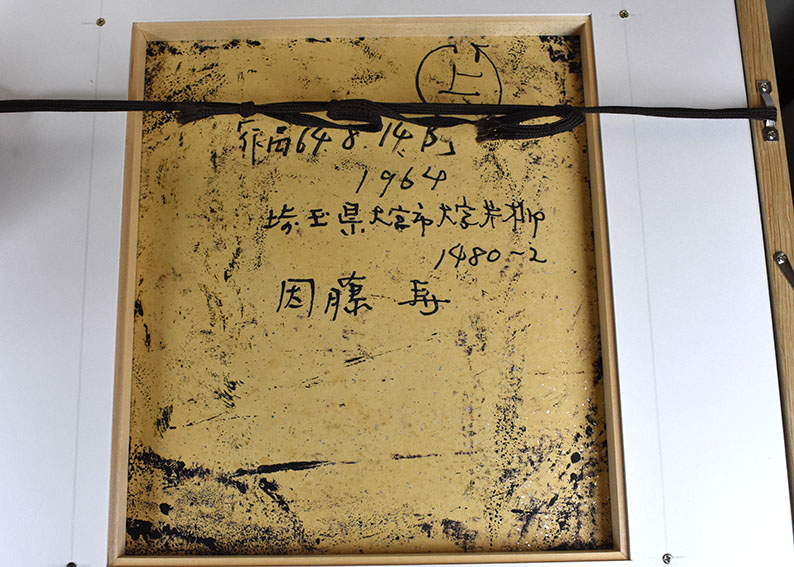 上
作品64.8.14.B
1964
埼玉県大宮市大字片柳
1480~2
因藤 寿